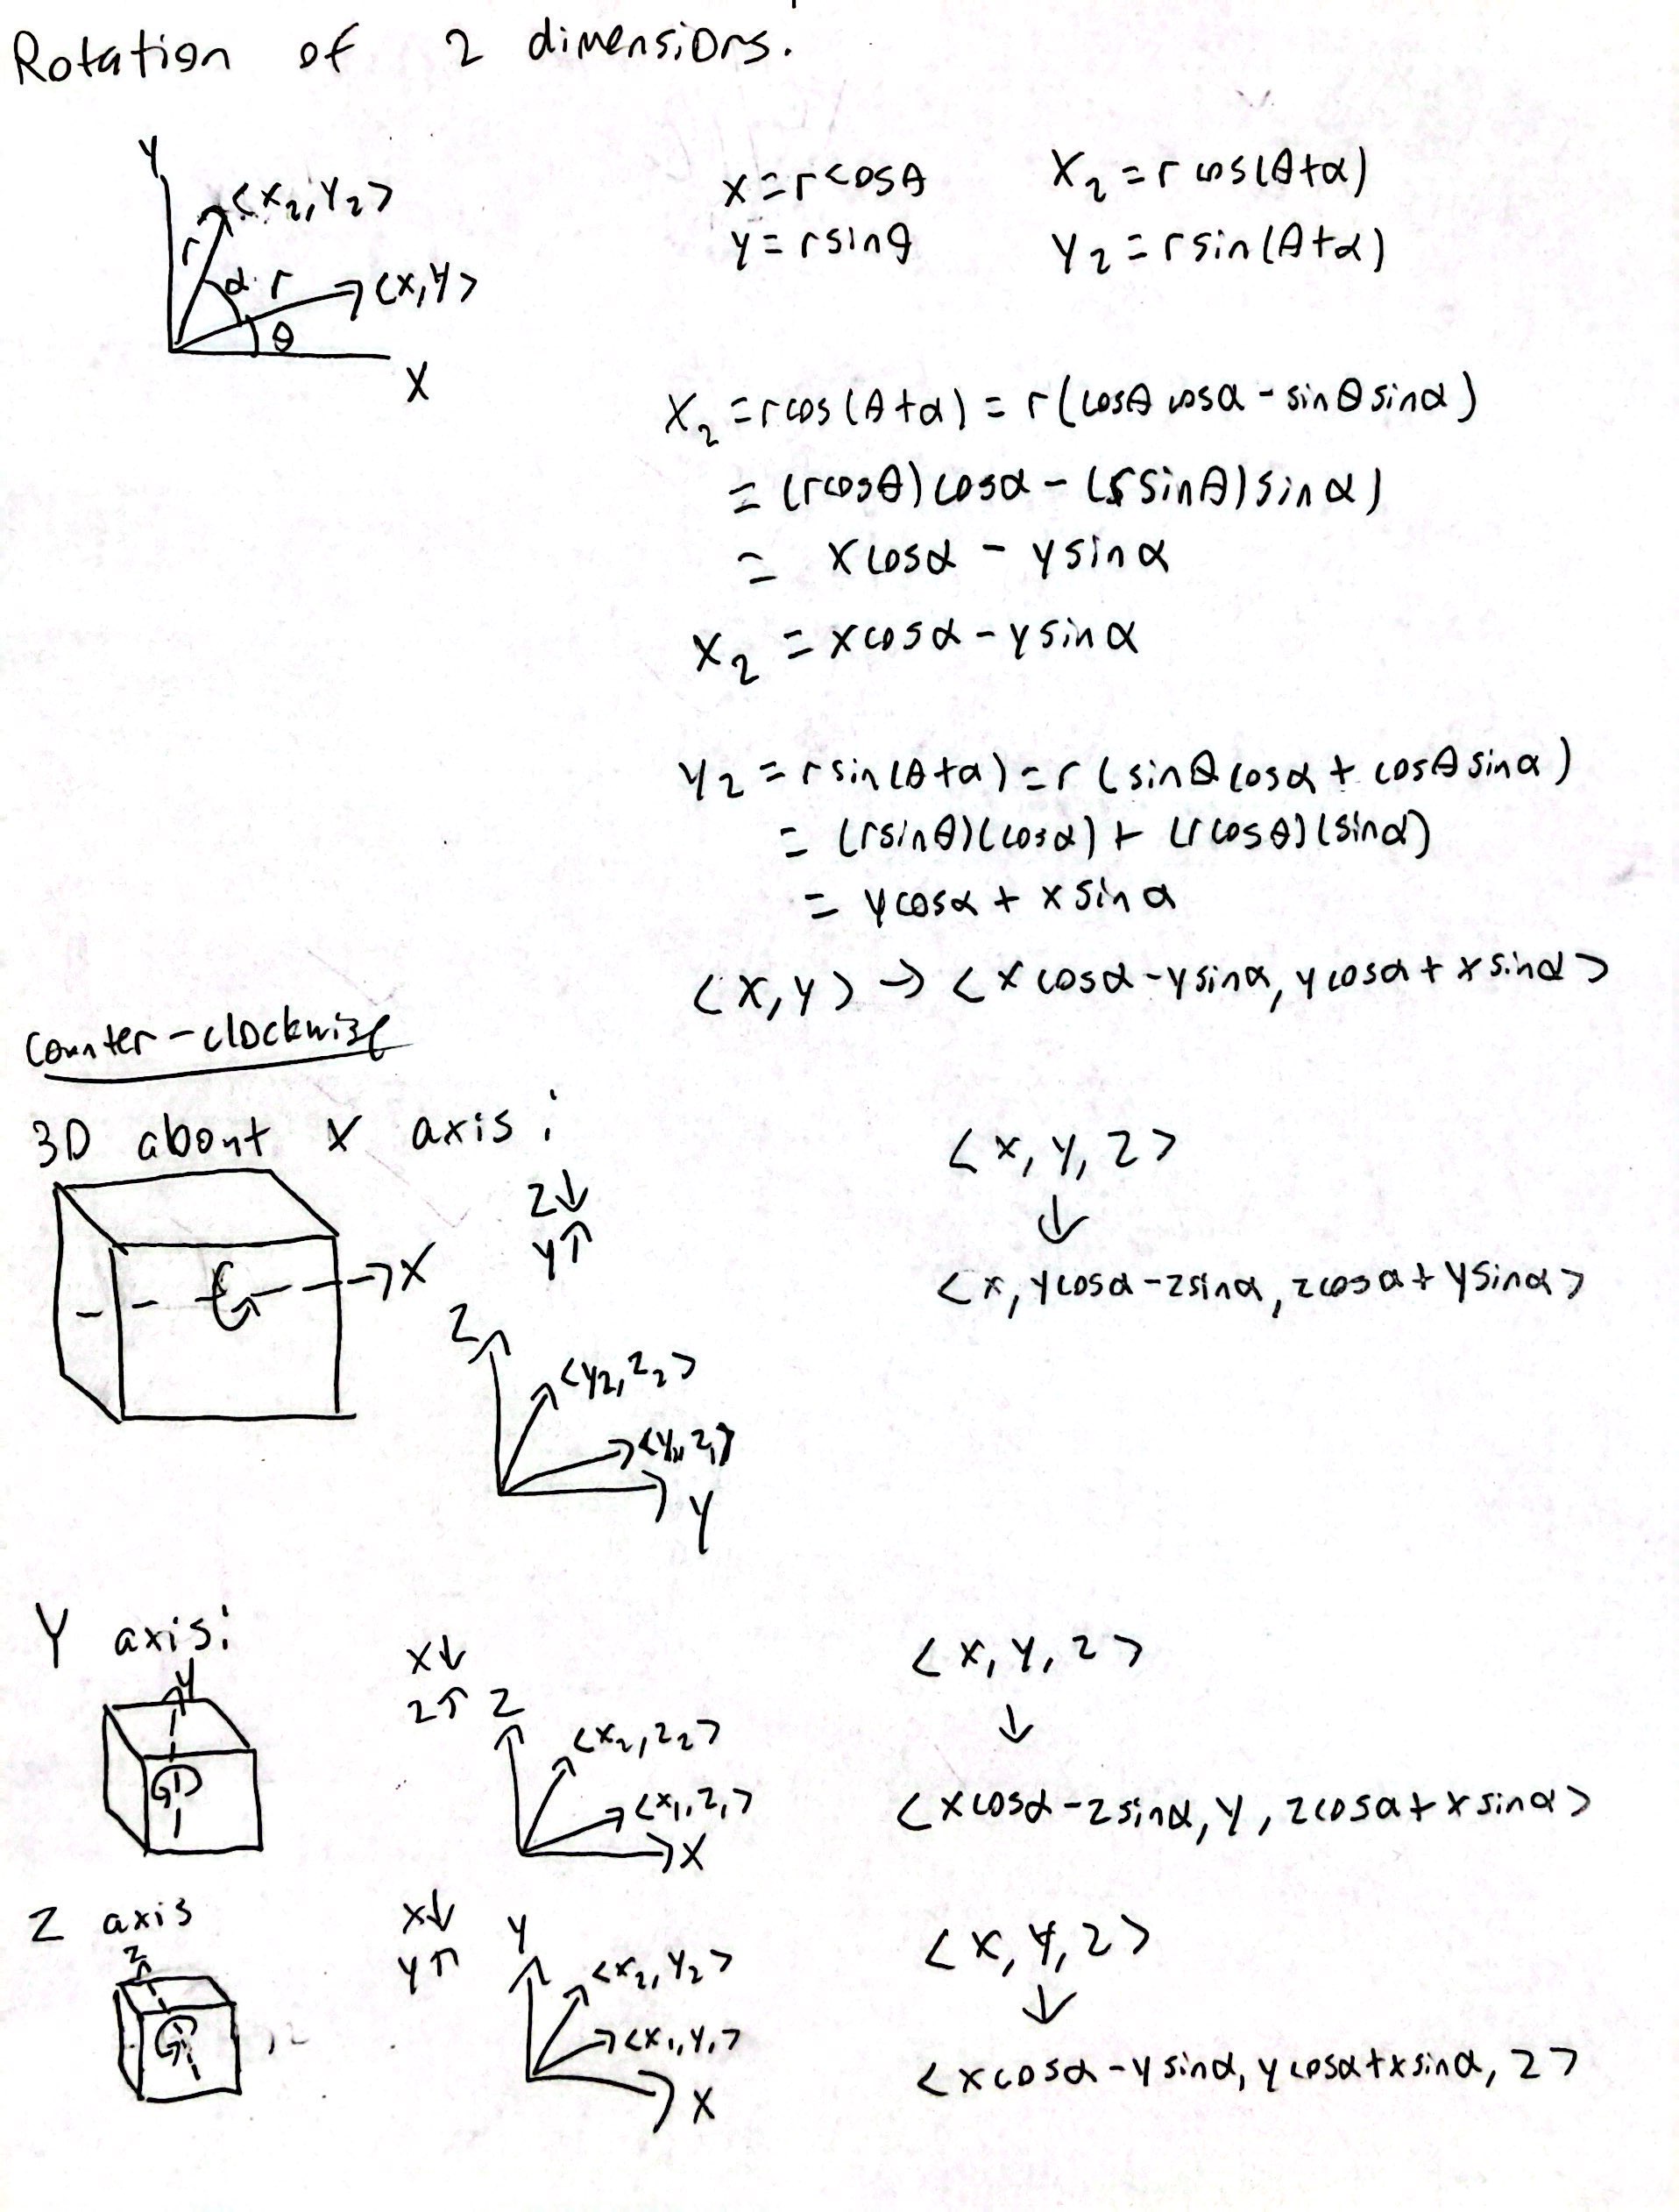 Rotation of 2 dimensions.
Y
<X₂,Y₂>
r
α r
<X,Y>
θ
X
x = rcosθ
y = rsinθ
X₂ = r cos(θ+α)
Y₂ = r sin(θ+α)
X₂ = rcos(θ+α) = r(cosθ cosα - sinθ sinα)
= (rcosθ)cosα - (rsinθ)sinα)
= xcosα - ysinα
X₂ = xcosα - ysinα
Y₂ = rsin(θ+α) = r(sinθ cosα + cosθ sinα)
= (rsinθ)(cosα) + (rcosθ)(sinα)
= ycosα + xsinα
<X,Y> → <xcosα - ysinα, ycosα + xsinα>
Counter-clockwise
3D about X axis:
→X
Z↓
Y↑
Z
<Y₂,Z₂>
<Y₁,Z₁>
Y
<X,Y,Z>
↓
<x, ycosα - zsinα, zcosα + ysinα>
Y axis:
Y
X↓
Z↑
Z
<X₂,Z₂>
<X₁,Z₁>
X
<X,Y,Z>
↓
<xcosα - zsinα, y, zcosα + xsinα>
Z axis
Z
X↓
Y↑
Y
<X₂,Y₂>
<X₁,Y₁>
X
<X,Y,Z>
↓
<xcosα - ysinα, ycosα + xsinα, z>